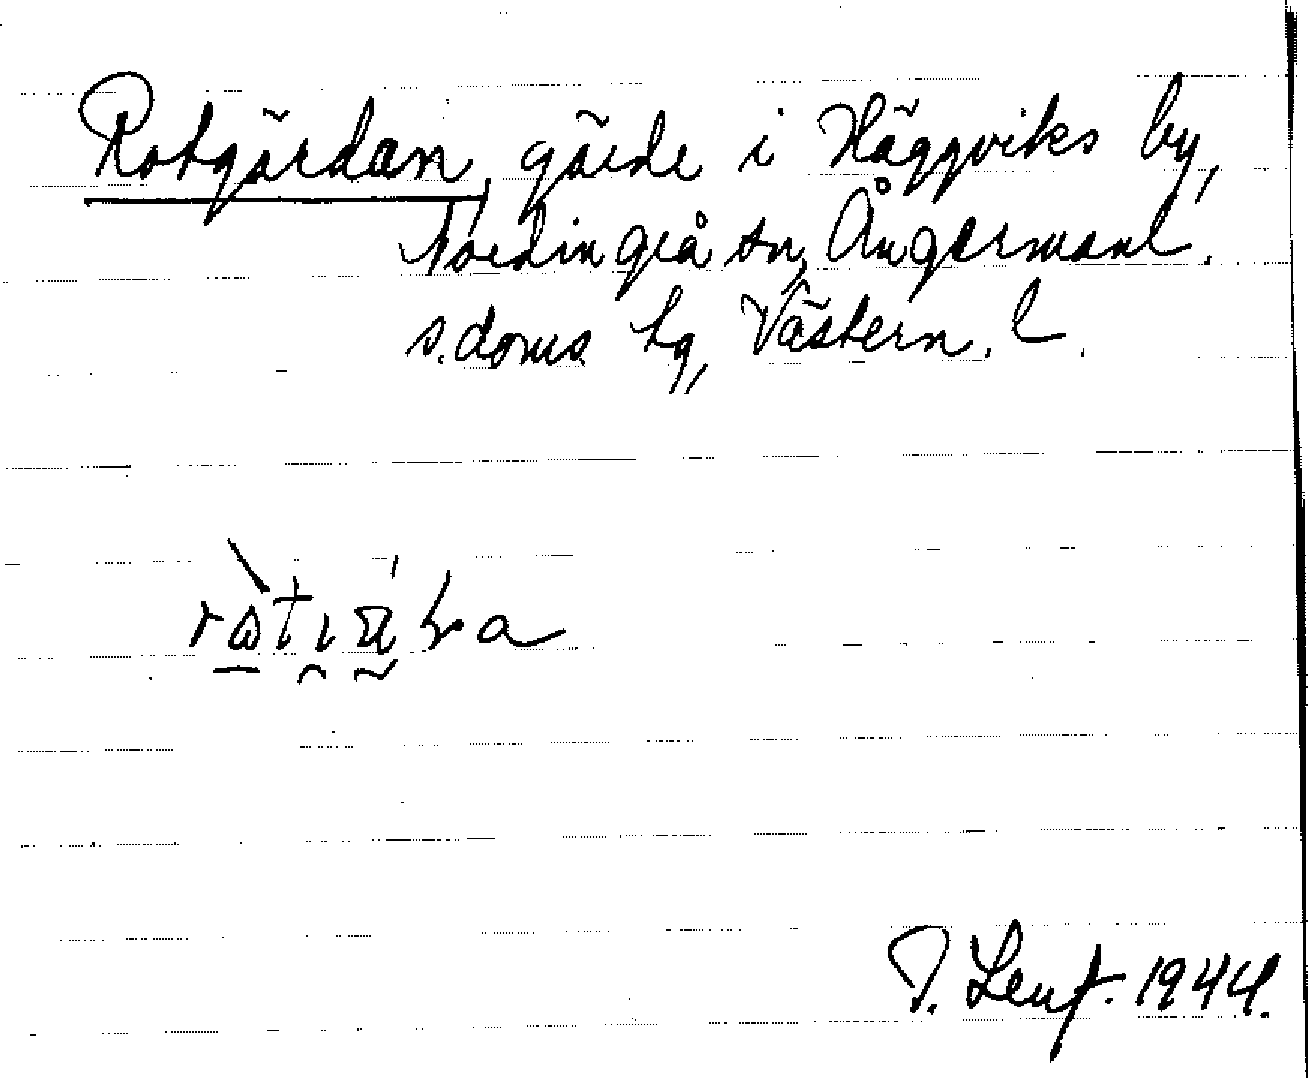 Rotgärdan, gärde i Häggviks by,
Nordingrå sn, Ångermanl.
s. doms. hg, Västern. l.
T. Lenf. 1944.